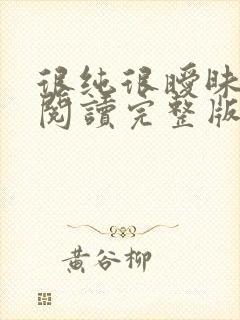 很純很曖昧
閱讀完整版
黃谷柳